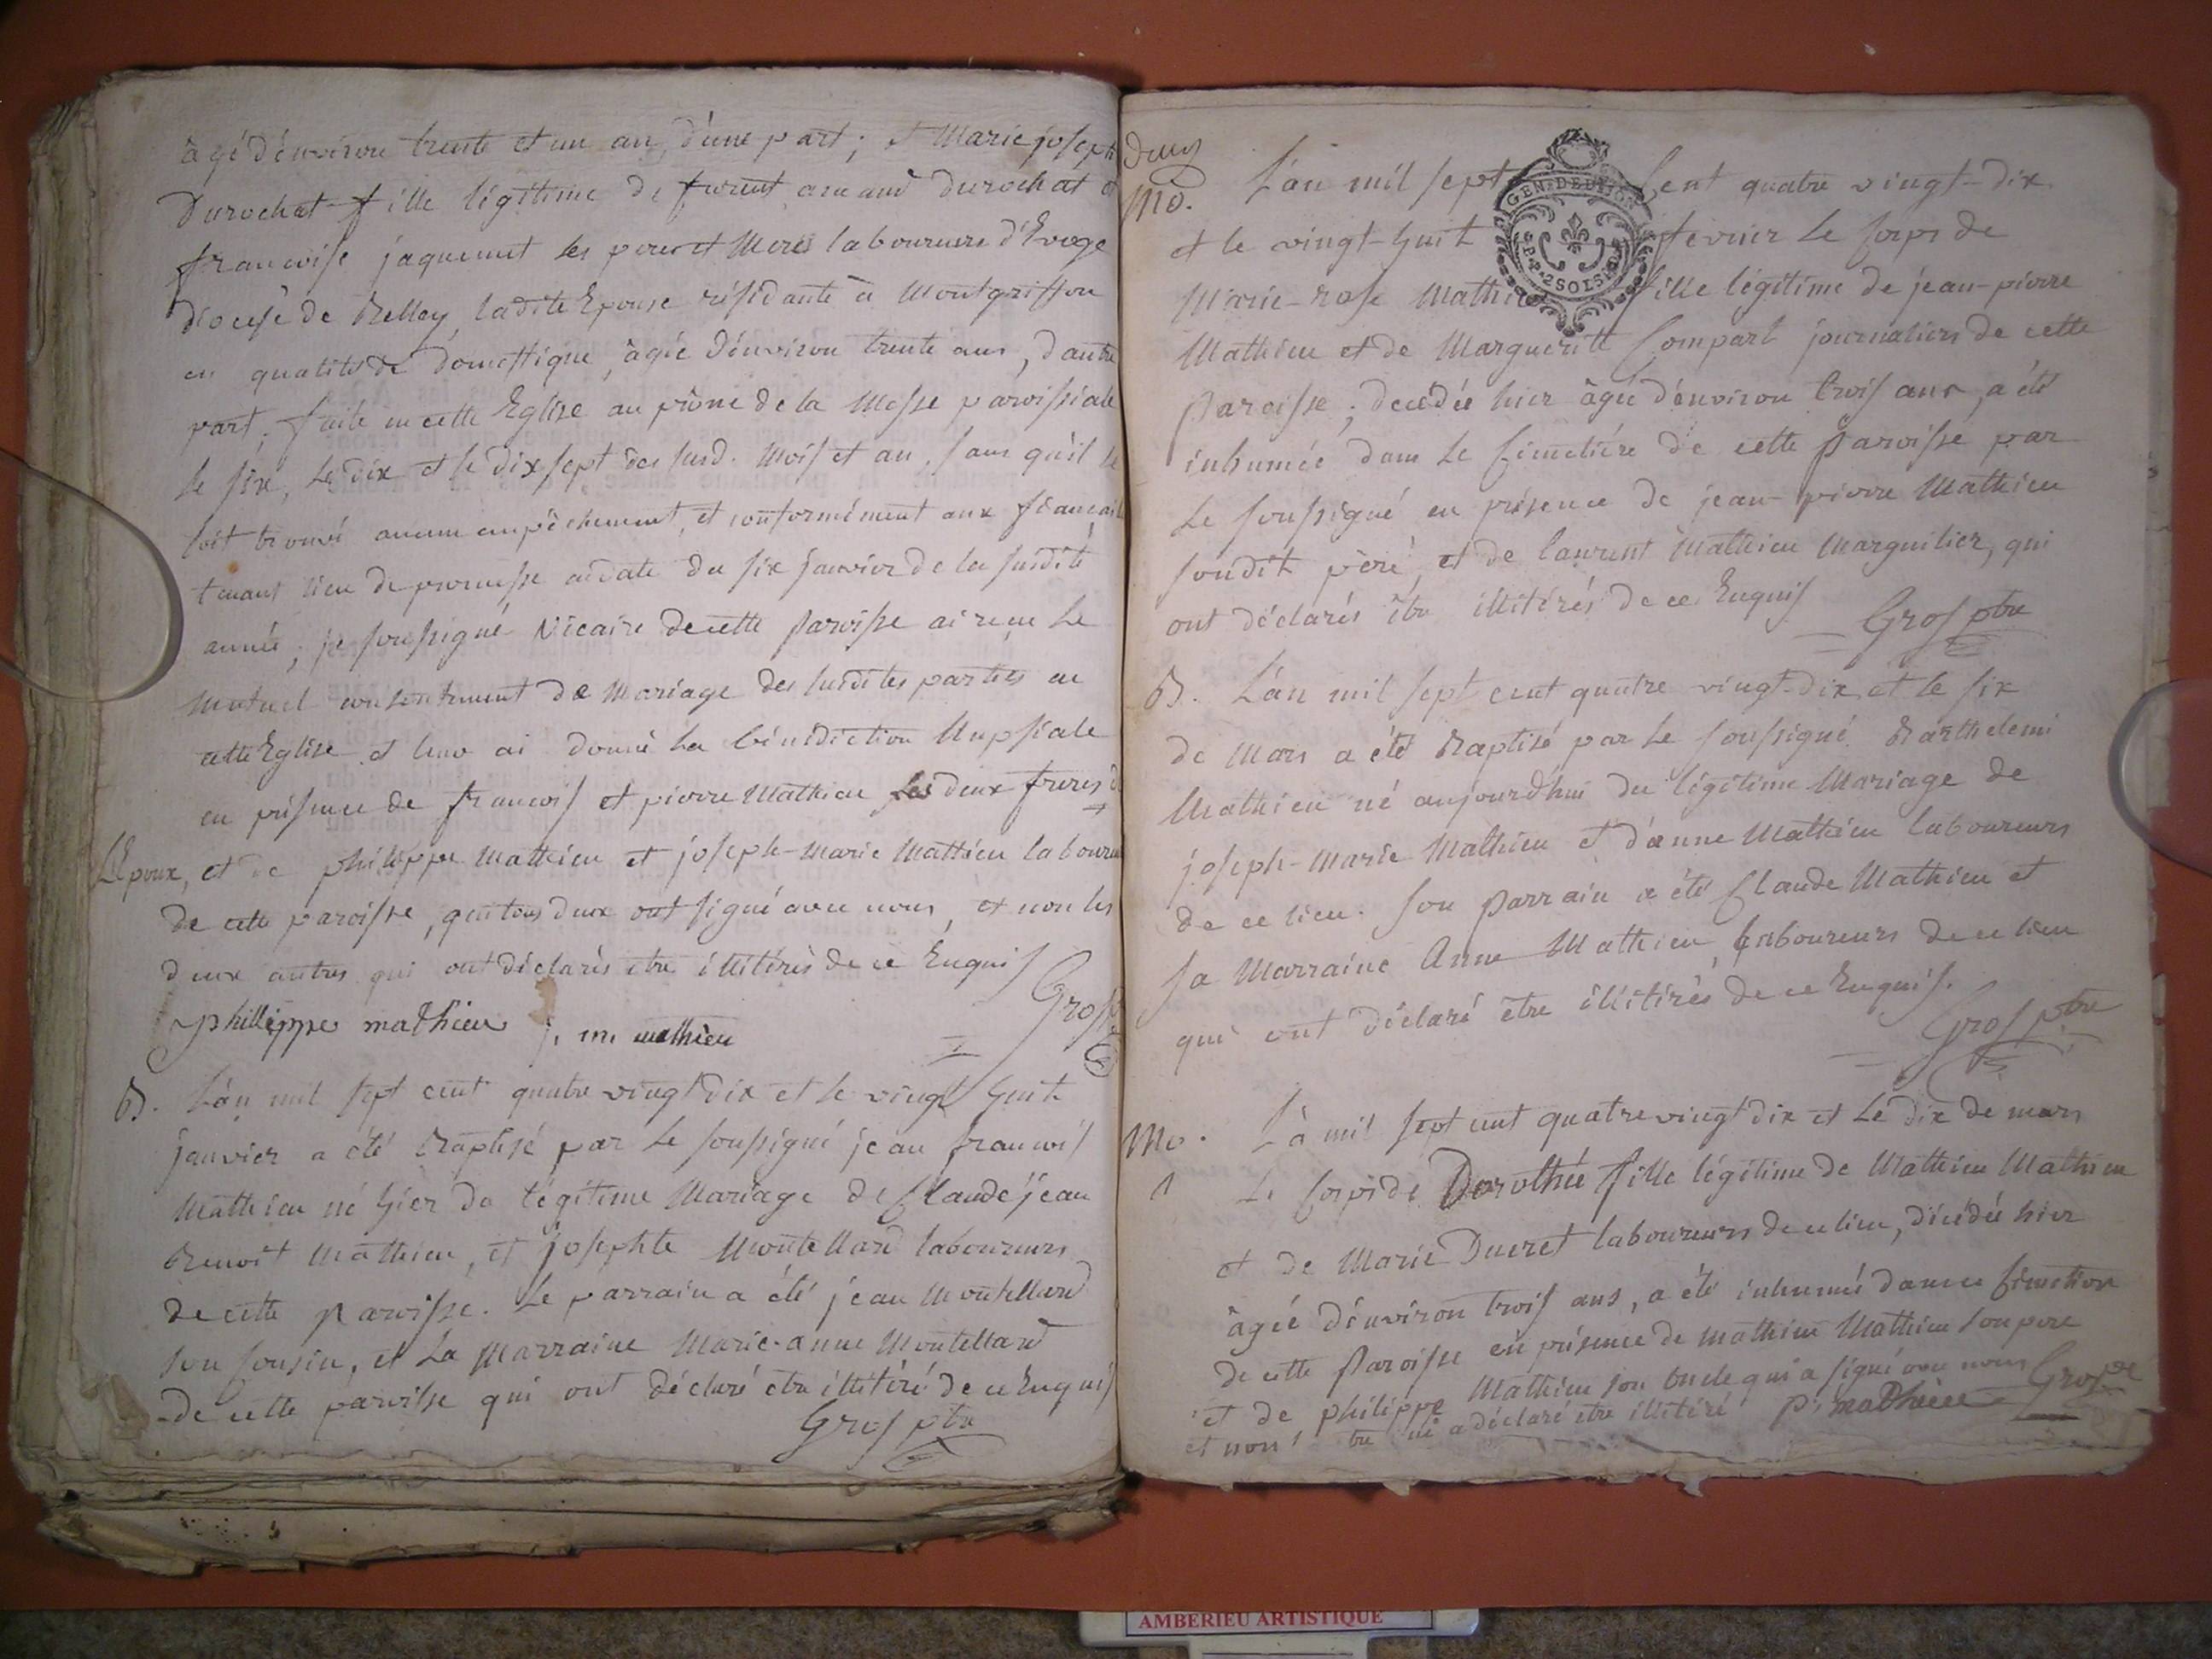 âgé d'environ trente et un an, d'une part; et Marie joseph
Durochat fille légitime de furent armand durochat et
francoise jaquemet ses pere et Mere laboureurs d'Evoge
diocese de Belley, ladite Epouse résidante à Montgriffon
en qualité de domestique, âgée d'environ trente ans, d'autre
part, faite en cette Eglise au prône de la Messe paroissiale
le six, le dix et le dix sept des susd. Mois et an, sans qu'il se
soit trouvé aucun empêchement, et conformément aux fiancailles
tenant lieu de promesse en date du six janvier de la susdite
année; je soussigné Vicaire de cette paroisse ai reçu le
mutuel consentement de Mariage des susdites parties en
cette Eglise et leur ai donné la bénédiction Nupsiale
en présence de francois et pierre Mathieu les deux freres de
L'Epoux, et de philippe Mathieu et joseph-Marie Mathieu laboureurs
de cette paroisse, qui tous deux ont signé avec nous, et non les
deux autres qui ont déclarés etre illitérés de ce Enquis
phillippe mathieu j. m. mathieu Gros
B. L'an mil sept cent quatre vingt dix et le vingt huit
janvier a été Baptisé par le soussigné jean francois
Mathieu né hier du légitime Mariage de Claude jean
Benoit Mathieu, et josephte Montellard laboureurs
de cette paroisse. Le parrain a été jean Montellard
son Cousin, et La Marraine Marie-anne Montellard
de cette paroisse qui ont déclaré etre illitéré de ce Enquis
Gros ptre
deux
Mo. L'an mil sept Cent quatre vingt-dix
GEN. DE DIJON
P.P. 2 SOLS
et le vingt-huit fevrier le Corps de
Marie-rose Mathieu fille légitime de jean-pierre
Mathieu et de Marguerite Compart journaliers de cette
Paroisse; decédée hier âgée d'environ trois ans, a été
inhumée dans le Cimetiére de cette Paroisse par
Le soussigné en présence de jean-pierre Mathieu
soudit père, et de laurent Mathieu Marguilier, qui
ont déclarés être illitérés de ce Enquis Gros ptre
B. L'an mil sept cent quatre vingt-dix et le six
de Mars a été Baptisé par Le soussigné Barthelemi
Mathieu né aujourd'hui du légitime Mariage de
joseph-Marie Mathieu et d'anne Mathieu laboureurs
de ce lieu. Son Parrain a été Claude Mathieu et
sa Marraine Anne Mathieu, laboureurs de ce lieu
qui ont déclaré être illitérés de ce Enquis.
Gros ptre
Mo. L'a mil sept cent quatre vingt dix et Le dix de mars
1 Le Corps de Dorothée fille légitime de Mathieu Mathieu
et de Marie Ducret laboureurs de ce lieu, décédée hier
âgée d'environ trois ans, a été inhumé dans ce Cimetiere
de cette Paroisse en présence de mathieu Mathieu son pere
et de philippe Mathieu son oncle qui a signé avec nous Gros ptre
et non a déclaré etre illitéré p. mathieu
AMBERIEU ARTISTIQUE